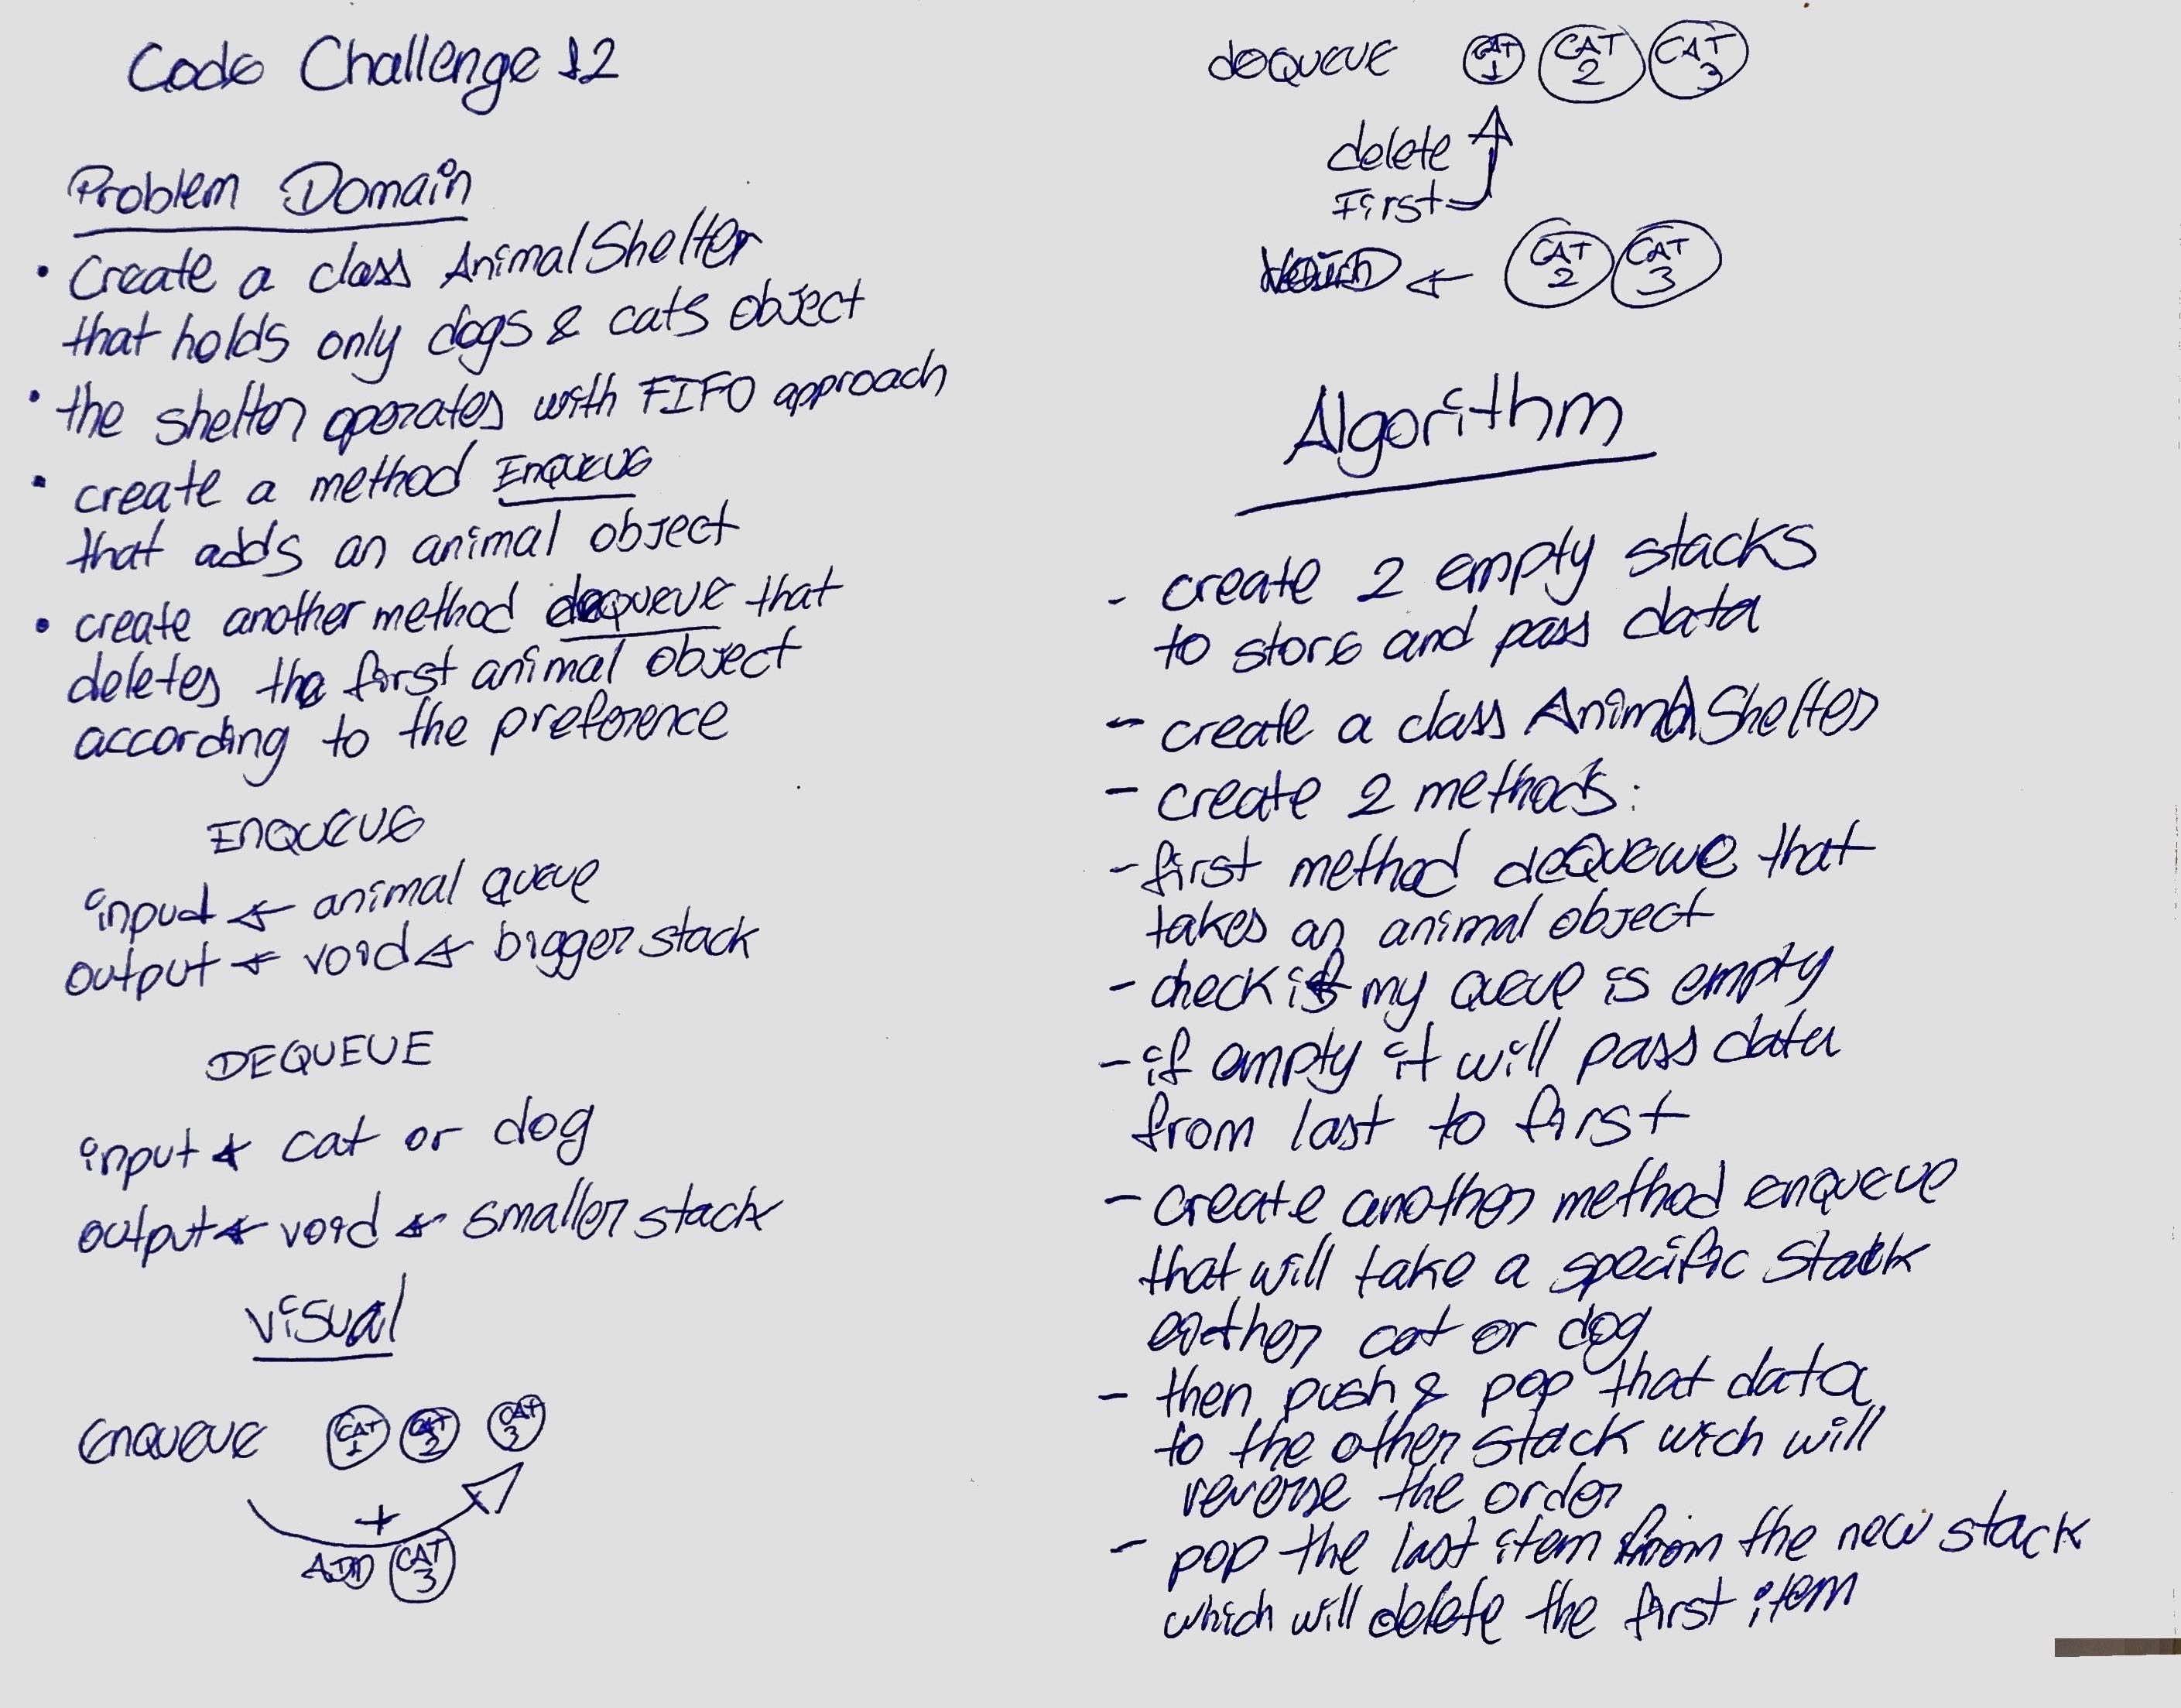 Code Challenge 12
Problem Domain
• Create a class AnimalShelter
that holds only dogs & cats object
• the shelter operates with FIFO approach
• create a method Enqueue
that adds an animal object
• create another method dequeue that
deletes the first animal object
according to the preference
ENQUEUE
input ← animal queue
output ← void ← bigger stack
DEQUEUE
input ← cat or dog
output ← void ← smaller stack
Visual
enqueue CAT 1 CAT 2 CAT 3
+
ADD CAT 3
deQUEUE CAT 1 CAT 2 CAT 3
delete
First
← CAT 2 CAT 3
Algorithm
- create 2 empty stacks
to store and pass data
- create a class AnimalShelter
- create 2 methods:
- first method deQueue that
takes an animal object
- check if my queue is empty
- if empty it will pass data
from last to first
- create another method enqueue
that will take a specific stack
either cat or dog
- then push & pop that data
to the other stack wich will
reverse the order
- pop the last item from the new stack
which will delete the first item